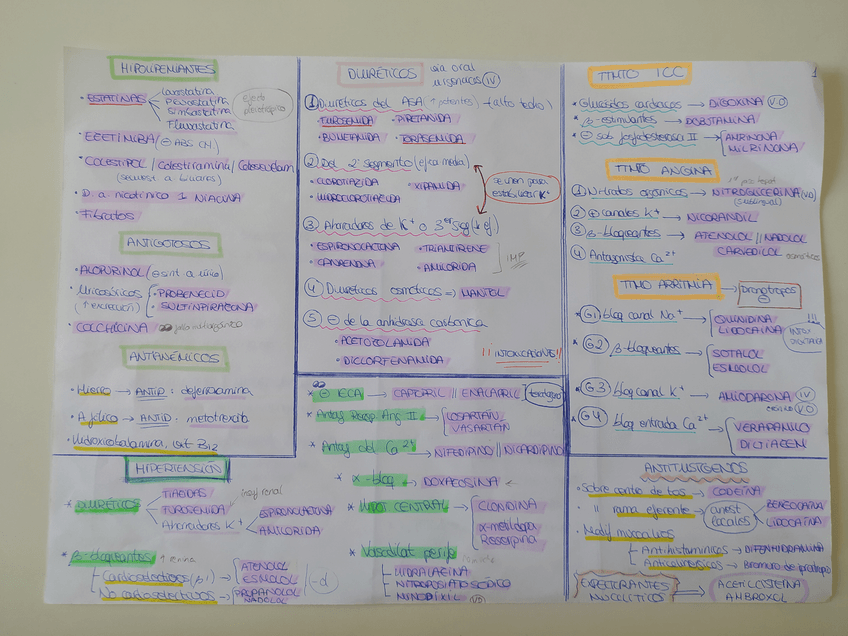 HIPOLIPEMIANTES
• ESTATINAS
Lovastatina
Pravastatina
Simvastatina
Fluvastatina
Efecto pleiotrópico
• EZETIMIBA (⊖ ABS CH)
• COLESTIPOL / Colestiramina / Colesevelam
(secuest a biliares)
• D. a. nicotínico 1 NIACINA
• Fibratos
ANTIGOTOSOS
• ALOPURINOL
• Uricosúricos
(↑ excreción)
• PROBENECID
• SULFINPIRAZONA
• COLCHICINA
ANTIANÉMICOS
• Hierro → ANTID: deferoxamina
• A. fólico → ANTID: metotrexato
• Hidroxicobalamina, vit B12
DIURÉTICOS
vía oral
(IV)
① Diuréticos del ASA ↑ potentes (alto techo)
• FUROSEMIDA • PIRETANIDA
• BUMETANIDA • TORASEMIDA
② Del 2º segmento (efica media)
• CLOROTIAZIDA • XIPAMIDA
• HIDROCLOROTIAZIDA
se unen para estabilizar K+
③ Ahorradores de K+ o 3er seg (↓ ef)
• ESPIRONOLACTONA • TRIAMTIRENE
• CANRENONA • AMILORIDA
IMP
④ Diuréticos osmóticos ⇒ MANITOL
⑤ ⊖ de la anhidrasa carbónica
• ACETOZOLAMIDA
• DICLORFENAMIDA
!! INTOXICACIONES !!
TTMTO ICC
1
• Glucósidos cardiacos → DIGOXINA (V.O)
• β-estimulantes → DOBUTAMINA
• ⊖ sob fosfodiesterasa II → AMRINONA
MILRINONA
TTMTO ANGINA
① Nitratos orgánicos → NITROGLICERINA (V.O)
(sublingual)
② ⊕ canales K+ → NICORANDIL
③ β-bloqueantes → ATENOLOL // NADOLOL
④ Antagonista Ca2+ CARVEDILOL
TTMO ARRITMIA → Dronotropos ⊖
• G1 blog canal Na+ → QUINIDINA
LIDOCAINA
!!!
INTOX DIGITALICA
• G2 β-bloqueantes → SOTALOL
ESMOLOL
• G3 bloq canal K+ → AMIODARONA IV
V.O
• G4 bloq entrada Ca2+ → VERAPAMILO
DILTIACEM
HIPERTENSIÓN
• DIURÉTICOS
TIACIDAS
FUROSEMIDA insuf renal
Ahorradores K+
ESPIRONOLACTONA
AMILORIDA
* β-bloqueantes ↑ renina
Cardioselectivos (β1) → ATENOLOL
ESMOLOL
No cardioselectivos → PROPANOLOL
NADOLOL
-d
* ⊖ IECA → CAPTOPRIL // ENALAPRIL
* Antag Recep Ang II → LOSARTÁN
VASARTÁN
* Antag del Ca2+ → NIFEDIPINO // NICARDIPINO
* α-bloq → DOXACOSINA
* HIPOT CENTRAL → CLONIDINA
α-metildopa
Reserpina
* Vasodilat perif
HIDRALAZINA
NITROPRUSIATO SÓDICO
MINOXIXIL VO
ANTITUSÍGENOS
• Sobre centro de tos → CODEÍNA
• '' rama eferente → anest locales
BENZOCAÍNA
LIDOCAÍNA
• Modif mucociliar
Antihistamínicos → DIFENHIDRAMINA
Anticolinérgicos → Bromuro de ipratropio
EXPECTORANTES
MUCOLÍTICOS
⇒ ACETILCISTEÍNA
AMBROXOL